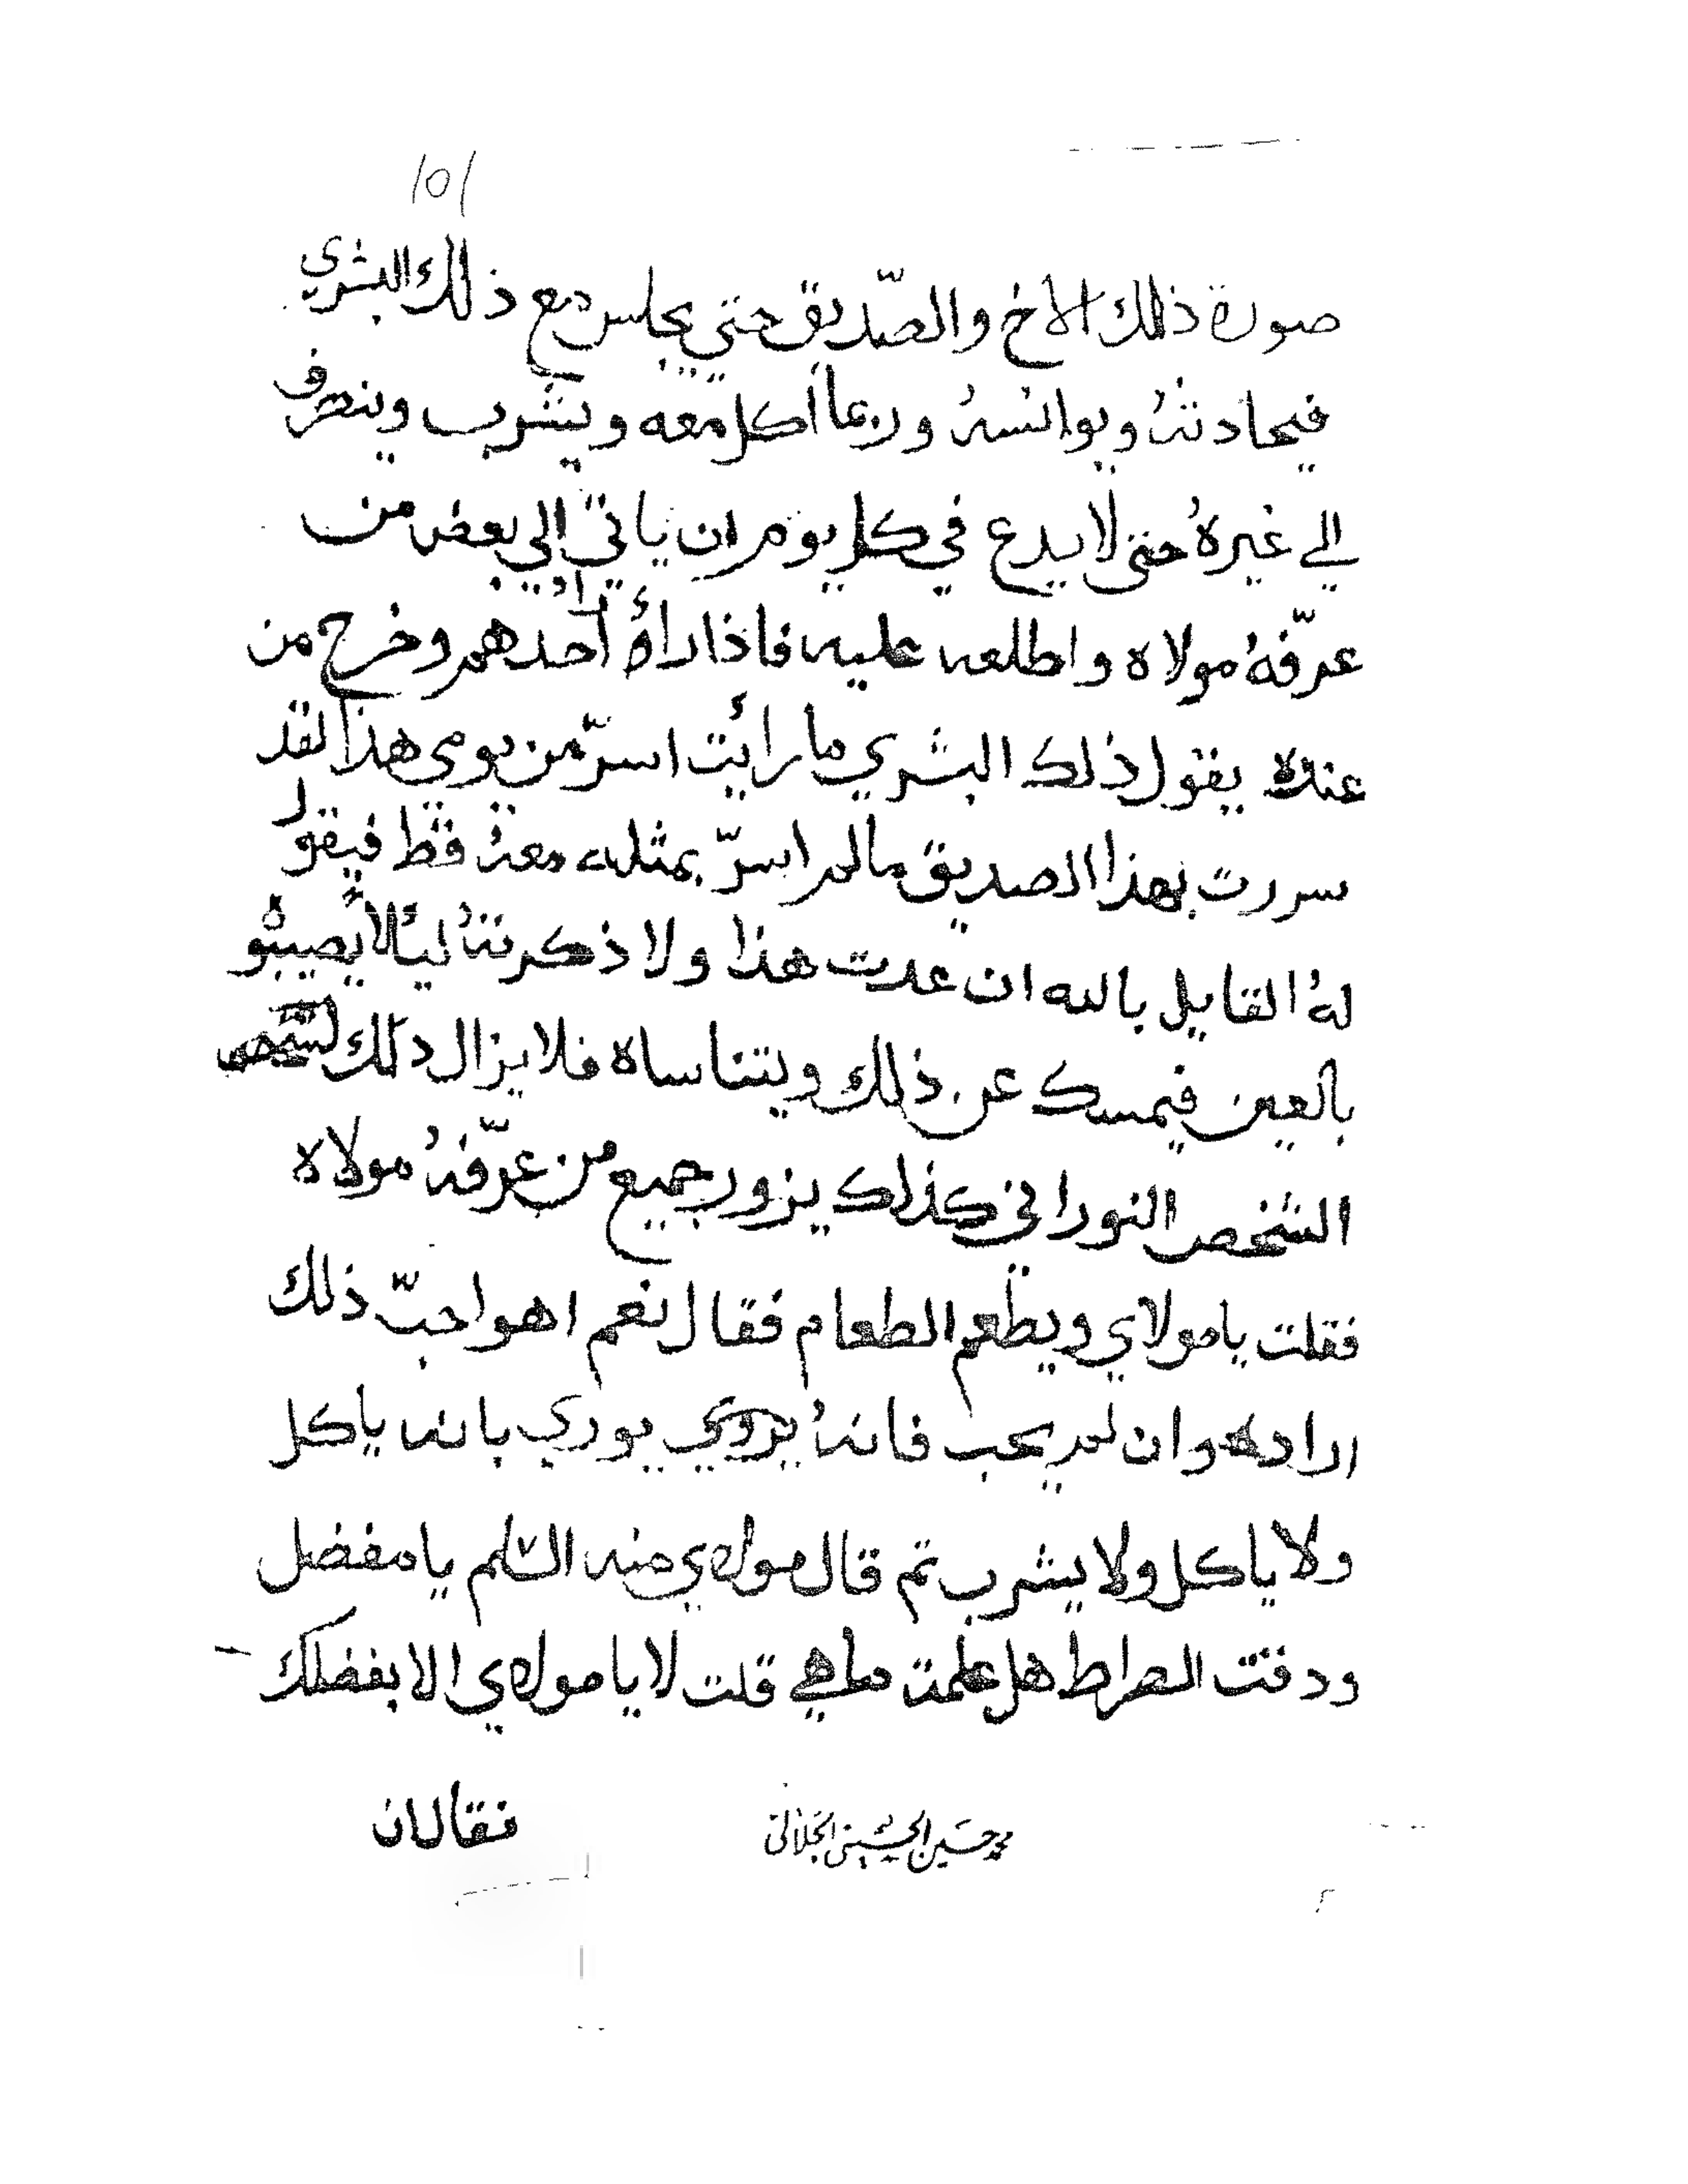 ١٥١
صورة ذلك الاخ والصّديق حتي يجلس مع ذلك البشري
فيحادثهُ ويوانسهُ وربما أكل معه ويشرب وينصرف
الي غيرهُ حتى لا يدع في كل يوم ان ياتي الي بعض من
عرّفهُ مولاه واطلعه عليه فاذا رأهُ أحدهم وخرج من
عنده يقول ذلك البشري ما رأيت اسرّ من يومي هذا لقد
سررت بهذا الصديق ما لم اسرّ بمثله معهُ قط فيقول
لهُ القايل بالله ان عدت هذا ولا ذكرتهُ ليألا يصيبوه
بالعين فيمسك عن ذلك ويتناساه فلا يزال دلك
الشخص النوراني كذلك يزور جميع من عرّفهُ مولاه
فقلت يا مولاي ويطعم الطعام فقال نعم اهو احبّ ذلك
اراده وان لم يحب فانهُ يوري بانه ياكل
ولا ياكل ولا يشرب تم قال مولاي منه السلم يا مفضل
ودقت الصراط هل علمة ما هي قلت لا يا مولاي الا بفضلك
فقال ان
محمد حسين الحسيني الجلالي